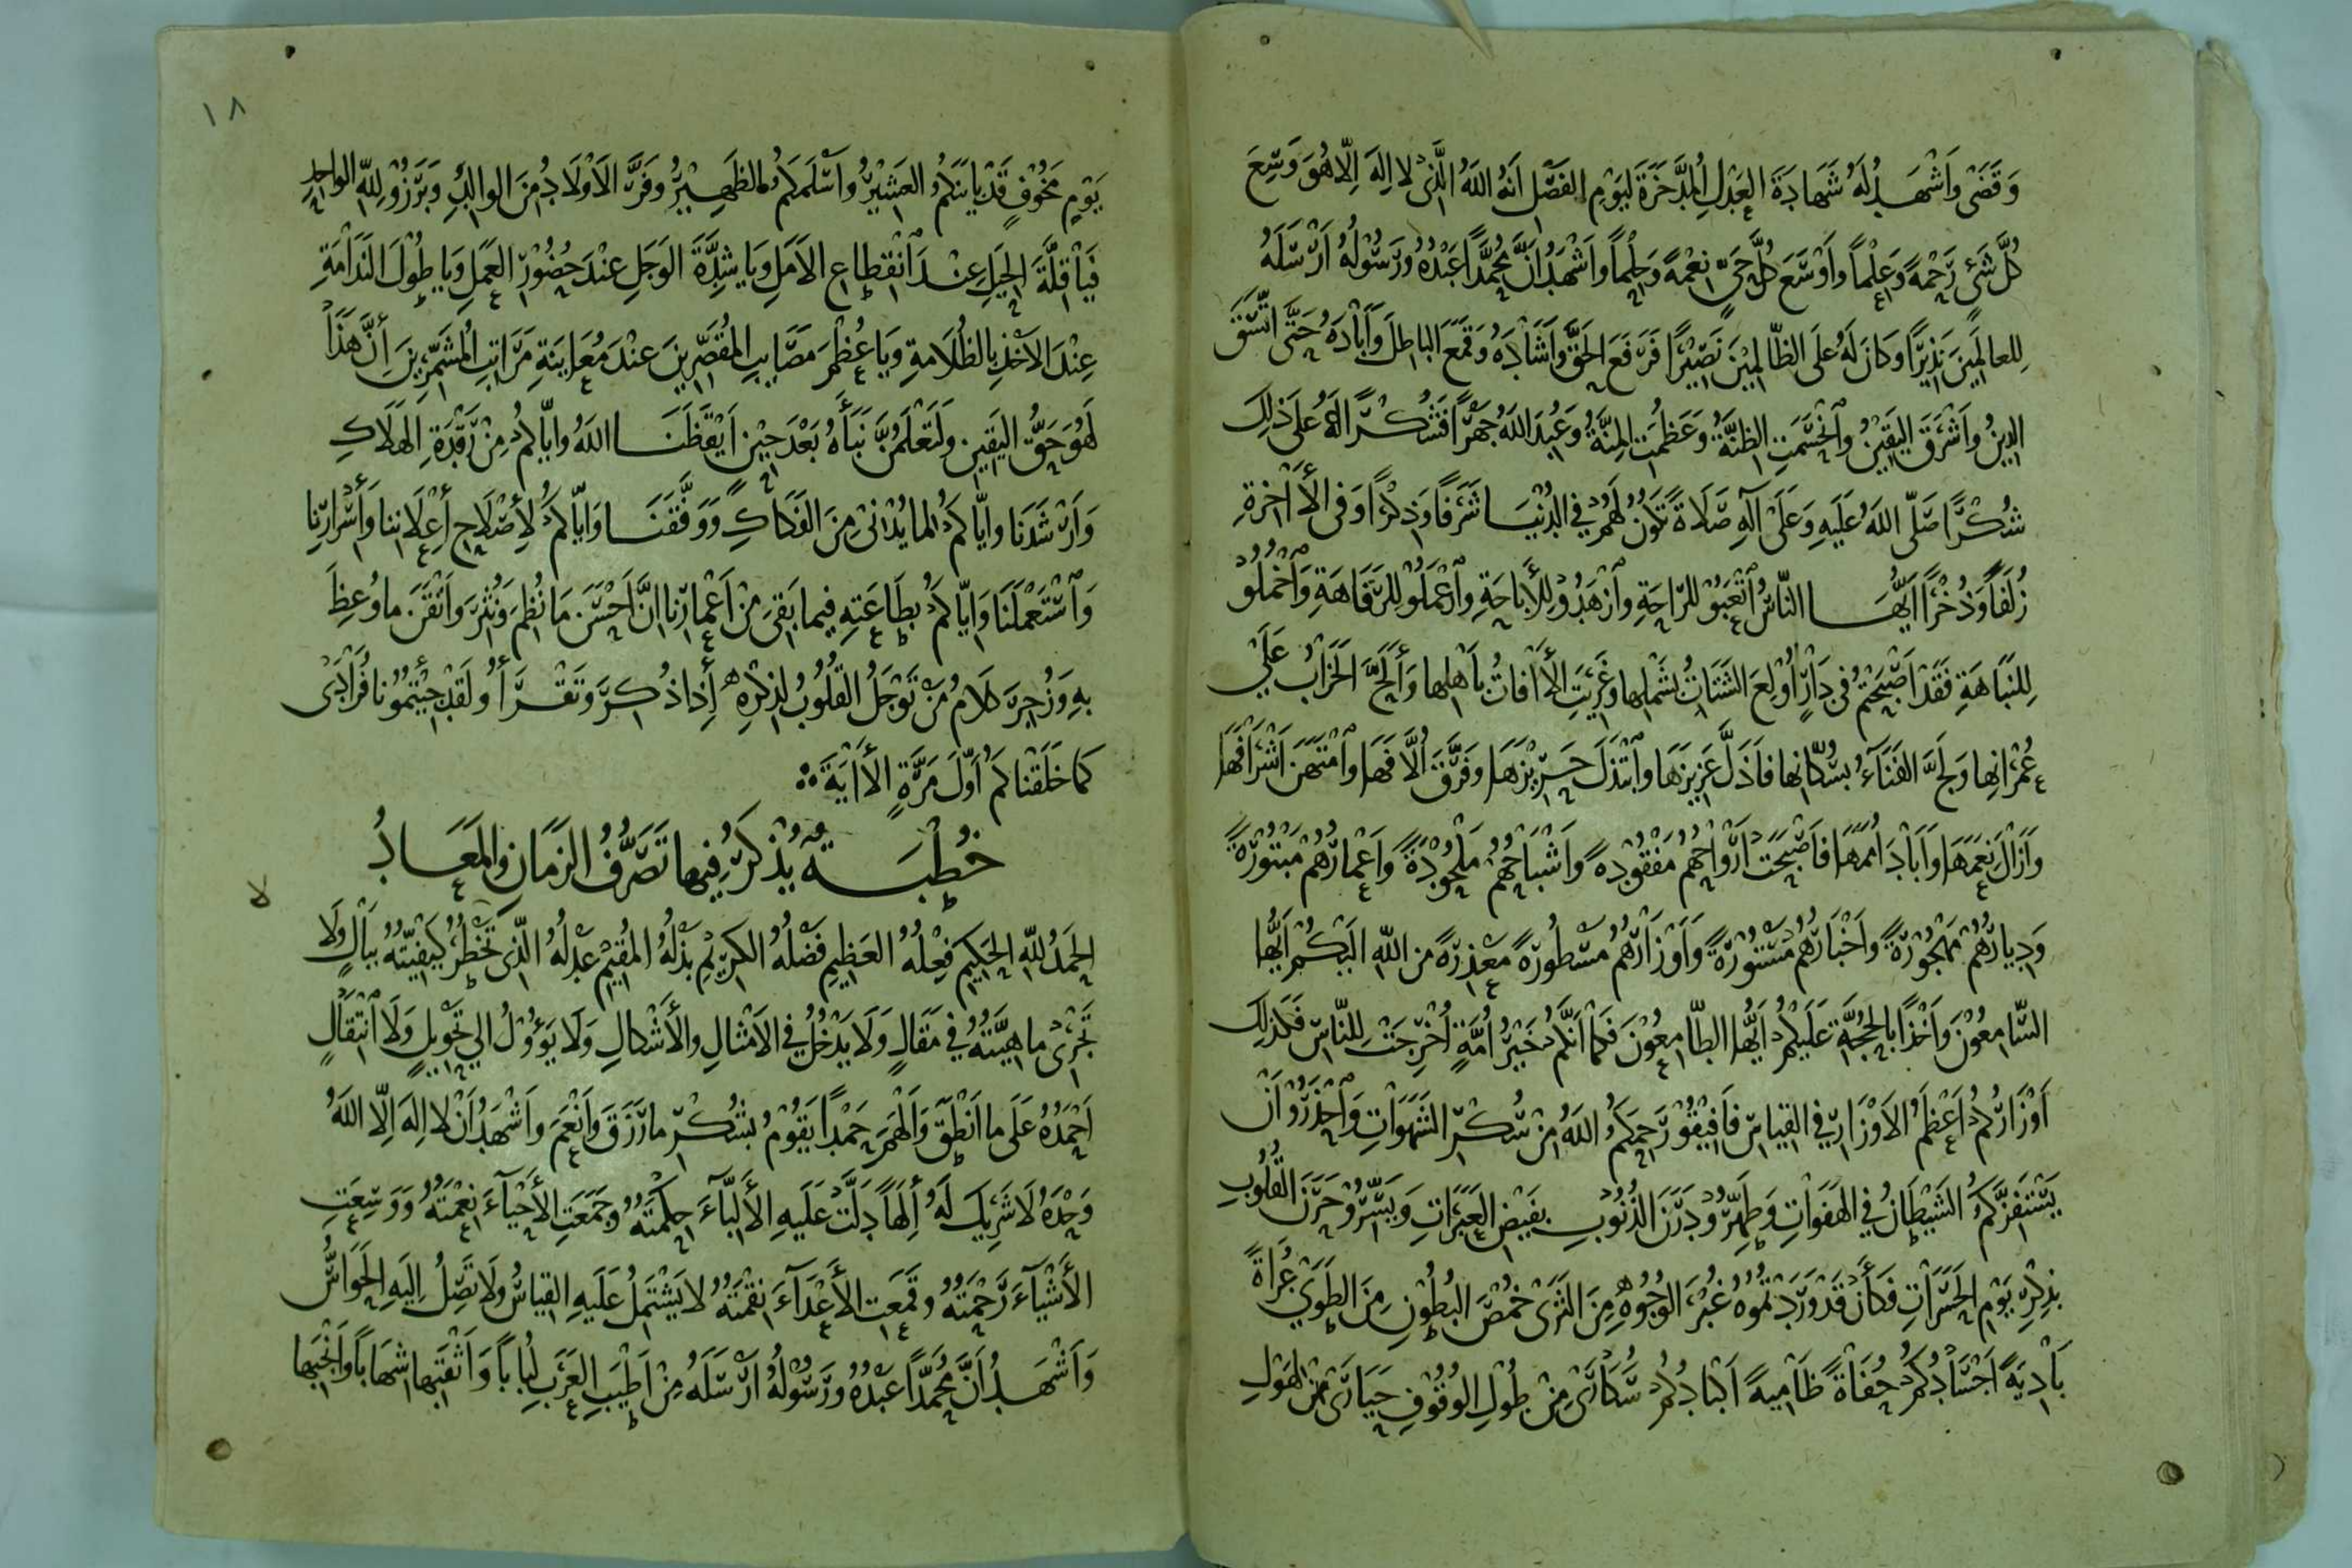 وَقَضَى وَأَشْهَدُ لَهُ شَهَادَةَ العَدْلِ المُدَّخَرَةَ لِيَوْمِ الفَصْلِ أَنَّهُ اللَّهُ الَّذِي لا إِلَهَ إِلّا هُوَ وَسِعَ
كُلَّ شَيْءٍ رَحْمَةً وَعِلْماً وَأَوْسَعَ كُلَّ حَيٍّ نِعْمَةً وَحِلْماً وَأَشْهَدُ أَنَّ مُحَمَّداً عَبْدُهُ وَرَسُوْلُهُ أَرْسَلَهُ
لِلعالَمِينَ نَذِيرًا وَكَانَ لَهُ عَلَى الظّالِمِيْنَ نَصِيْرًا فَرَفَعَ الحَقَّ وَأَشَادَهُ وَقَمَعَ البَاطِلَ وَأَبَادَهُ حَتَّى اتَّسَقَ
الدِينُ وَأَشْرَقَ اليَقِيْنُ وَانْحَسَمَتِ الظِنَّةُ وَعَظُمَتِ المِنَّةُ وَعُبِدَ اللَّهُ جَهْرًا فَشُكْرًا لَهُ عَلَى ذَلِكَ
شُكْرًا صَلَّى اللَّهُ عَلَيهِ وَعَلَى آلِهِ صَلَاةً تَكُونُ لَهُمْ فِي الدُنْيَا شَرَفًا وَذِكْرًا وَفِي الأَاخِرَةِ
زُلَفًا وَذُخْرًا أَيُّهَا النّاسُ اتْعَبُوْ لِلرّاحَةِ وَازْهَدُوْ لِلأَبَاحَةِ وَاعْمَلُوْ لِلرَّفَاهَةِ وَاخْمُلُوْ
لِلنَّبَاهَةِ فَقَدْ أَصْبَحْتُمْ فِي دَارٍ أُوْلِعَ الشَتَاتُ بِشَمْلِها وَغَرِيَتِ الأَافَاتُ بِأَهْلِها وَأَلَحَّ الخَرَابُ عَلَى
عُمْرَانِها وَلَجَّ الفَنَآءُ بِسُكّانِها فَأَذَلَّ عَزِيزَهَا وَابْتَذَلَ حَرِيْزَهَا وَفَرَّقَ أُلَّافَهَا وَامْتَهَنَ أَشْرَافَهَا
وَأَزَالَ نِعَمَهَا وَأَبَادَ أُمَمَهَا فَأَصْبَحَتْ أَرْوَاحُهُمْ مَفْقُوْدِهً وَأَشْبَاحُهُمْ مَلْحُوْدْةً وَأَعْمارُهُمْ مَبْتُوْرَةً
وَدِيارُهُمْ مَهْجُوْرَةً وَأَخْبَارُهُمْ مَسْتُوْرَةً وَأَوْزَارُهُمْ مَسْطُورَةً مَعْذِرَةً مِنَ اللَّهِ إِلَيْكُمْ أَيُّها
السّامِعُوْنَ وَأَخْذًا بِالحُجَّةِ عَلَيْكُمْ أَيُّها الطّامِعُوْنَ فَكَمَا أَنَّكُمْ خَيْرُ أُمَّةٍ أُخْرِجَتْ لِلنّاسِ فَكَذلِكَ
أَوْزَارُكُمْ أَعْظَمُ الأَوْزَارِ فِي القِياسِ فَأَفِيْقُوْ رَحِمَكُمُ اللَّهُ مِنْ سُكْرِ الشَهَوَاتِ وَاحْذَرُوْ أَنْ
يَسْتَفِزَّكُمُ الشَيْطَانُ فِي الهَفَوَاتِ وَطَهِّرُوْ دَرَنَ الذُنُوْبِ بِفَيْضِ العَبَرَاتِ وَيَسِّرُوْ حَرَنَ القُلُوبِ
بِذِكْرِ يَوْمِ الحَسَرَاتِ فَكَأَنْ قَدْ وَرَدْتُمُوهُ غُبْرَ الوُجُوْهِ مِنَ الثَرَى خُمْصَ البُطُوْنِ مِنَ الطَوَى عُرَاةً
بَادِيَةً أَجْسَادُكُمْ حُفَاةً ظَامِيةً أَكْبَادُكُمْ سُكَارَى مِنْ طُولِ الوُقُوْفِ حَيَارَى مِنْ هَوْلِ
١٨
يَوْمٍ مَخُوْفٍ قَدْ بايَنَكُمُ العَشِيْرُ وَأَسْلَمَكُمُ الظَهِيْرُ وَفَرَّ الأَوْلَادُ مِنَ الوالِدِ وَبَرَزُوْ لِلَّهِ الواحِدِ
فَيَا قِلَّةَ الحِيَلِ عِنْدَ انْقِطاعِ الأَمَلِ وَيَا شِدَّةَ الوَجَلِ عِنْدَ حُضُوْرِ العَمَلِ وَيا طُوْلَ النَدَامَةِ
عِنْدَ الأَخْذِ بِالظُلَامَةِ وَيَا عُظْمَ مَصَايِبِ المُقَصِّرِينَ عِنْدَ مُعَايَنَةِ مَرَاتِبِ المُشَمِّرِينَ أِنَّ هَذَا
لَهُوَ حَقُّ اليَقِينِ وَلَتَعْلَمُنَّ نَبَأَهُ بَعْدَ حِيْنٍ أَيْقَظَنَا اللَّهُ وَإِيّاكُمْ مِنْ رَقْدَةِ الهَلَاكِ
وَأَرْشَدَنَا وَإِيّاكُمْ لِمَا يُدْنِي مِنَ الفَكَاكِ وَوَفَّقَنَا وَإِيّاكُمْ لِأِصْلَاحِ أَعْلَانِنا وَأَسْرَارِنا
وَاسْتَعْمَلَنَا وَإِيّاكُمْ بِطَاعَتِهِ فِيما بَقِيَ مِنْ أَعْمارِنا إِنَّ أَحْسَنَ مَا نُظِمَ وَنُثِرَ وَأَتْقَنَ ما وُعِظَ
بِهِ وَزُجِرَ كَلَامُ مَنْ تَوْجَلُ القُلُوبُ لِذِكْرِهِ أِذا ذُكِرَ وَتَقْرَأُ وَلَقَدْ جِئْتُمُوْنا فُرَادَى
كَمَا خَلَقْناكُمْ أَوَّلَ مَرَّةٍ الأَايَةَ
خُطْبَةٌ يُذْكَرُ فِيها تَصَرُّفُ الزَمَانِ وَالمَعَادُ
الحَمْدُ لِلَّهِ الحَكِيمِ فِعْلُهُ العَظِيمِ فَضْلُهُ الكَرِيْمِ بَذْلُهُ المُقِيْمِ عَدْلُهُ الَّذِي لَا تَخْطُرُ كَيْفِيَّتُهُ بِبَالٍ وَلَا
تَجْرِي ماهِيَّتُهُ فِي مَقَالٍ وَلَا يَدْخُلُ فِي الأَمْثالِ وَالأَشْكالِ وَلَا يَؤُوْلُ إِلَى تَحْوِيلٍ وَلَا انْتِقَالٍ
أَحْمَدُهُ عَلَى ما أَنْطَقَ وَأَلْهَمَ حَمْداً يَقُوْمُ بِشُكْرِ ما رَزَقَ وَأَنْعَمَ وَأَشْهَدُ أَنْ لا إِلهَ إِلّا اللَّهُ
وَحْدَهُ لَا شَرِيكَ لَهُ أِلَهًا دَلَّتْ عَلَيهِ الأَلِبَّآءَ حِكْمَتُهُ وَعَمَّتِ الأَحْيَآءَ نِعْمَتُهُ وَوَسِعَتِ
الأَشْيَآءَ رَحْمَتُهُ وَقَمَعَتِ الأَعْدَآءَ نِقْمَتُهُ لا يَشْتَمِلُ عَلَيهِ القِياسُ وَلَا تَصِلُ إِلَيهِ الحَوَاسُّ
وَأَشْهَدُ أَنَّ مُحَمَّداً عَبْدُهُ وَرَسُوْلُهُ أَرْسَلَهُ مِنْ أَطْيَبِ العَرَبِ لُبَاباً وَأَثْقَبِها شِهَاباً وَأَنْجَبِها